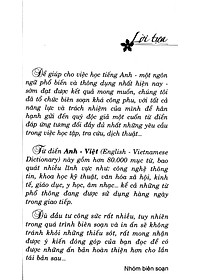 Lời tựa
Để giúp cho việc học tiếng Anh - một ngôn
ngữ phổ biến và thông dụng nhất hiện nay -
sớm đạt được kết quả mong muốn, chúng tôi
đã tổ chức biên soạn khá công phu, với tất cả
năng lực và trách nhiệm của mình để hân
hạnh gửi đến quý độc giả một cuốn từ điển
đáp ứng tương đối đầy đủ nhất những yêu cầu
trong việc học tập, tra cứu, dịch thuật...
Từ điển Anh - Việt (English - Vietnamese
Dictionary) này gồm hơn 80.000 mục từ, bao
quát nhiều lĩnh vực như: công nghệ thông
tin, khoa học kỹ thuật, văn hóa xã hội, kinh
tế, giáo dục, y học, âm nhạc.. kể cả những từ
phổ thông đang được sử dụng hàng ngày
trong giao tiếp.
Dù đầu tư công sức rất nhiều, tuy nhiên
trong quá trình biên soạn và in ấn sẽ không
tránh khỏi những thiếu sót, rất mong nhận
được ý kiến đóng góp của bạn đọc để có
được những ấn bản hoàn thiện hơn cho lần
tái bản sau...
Nhóm biên soạn